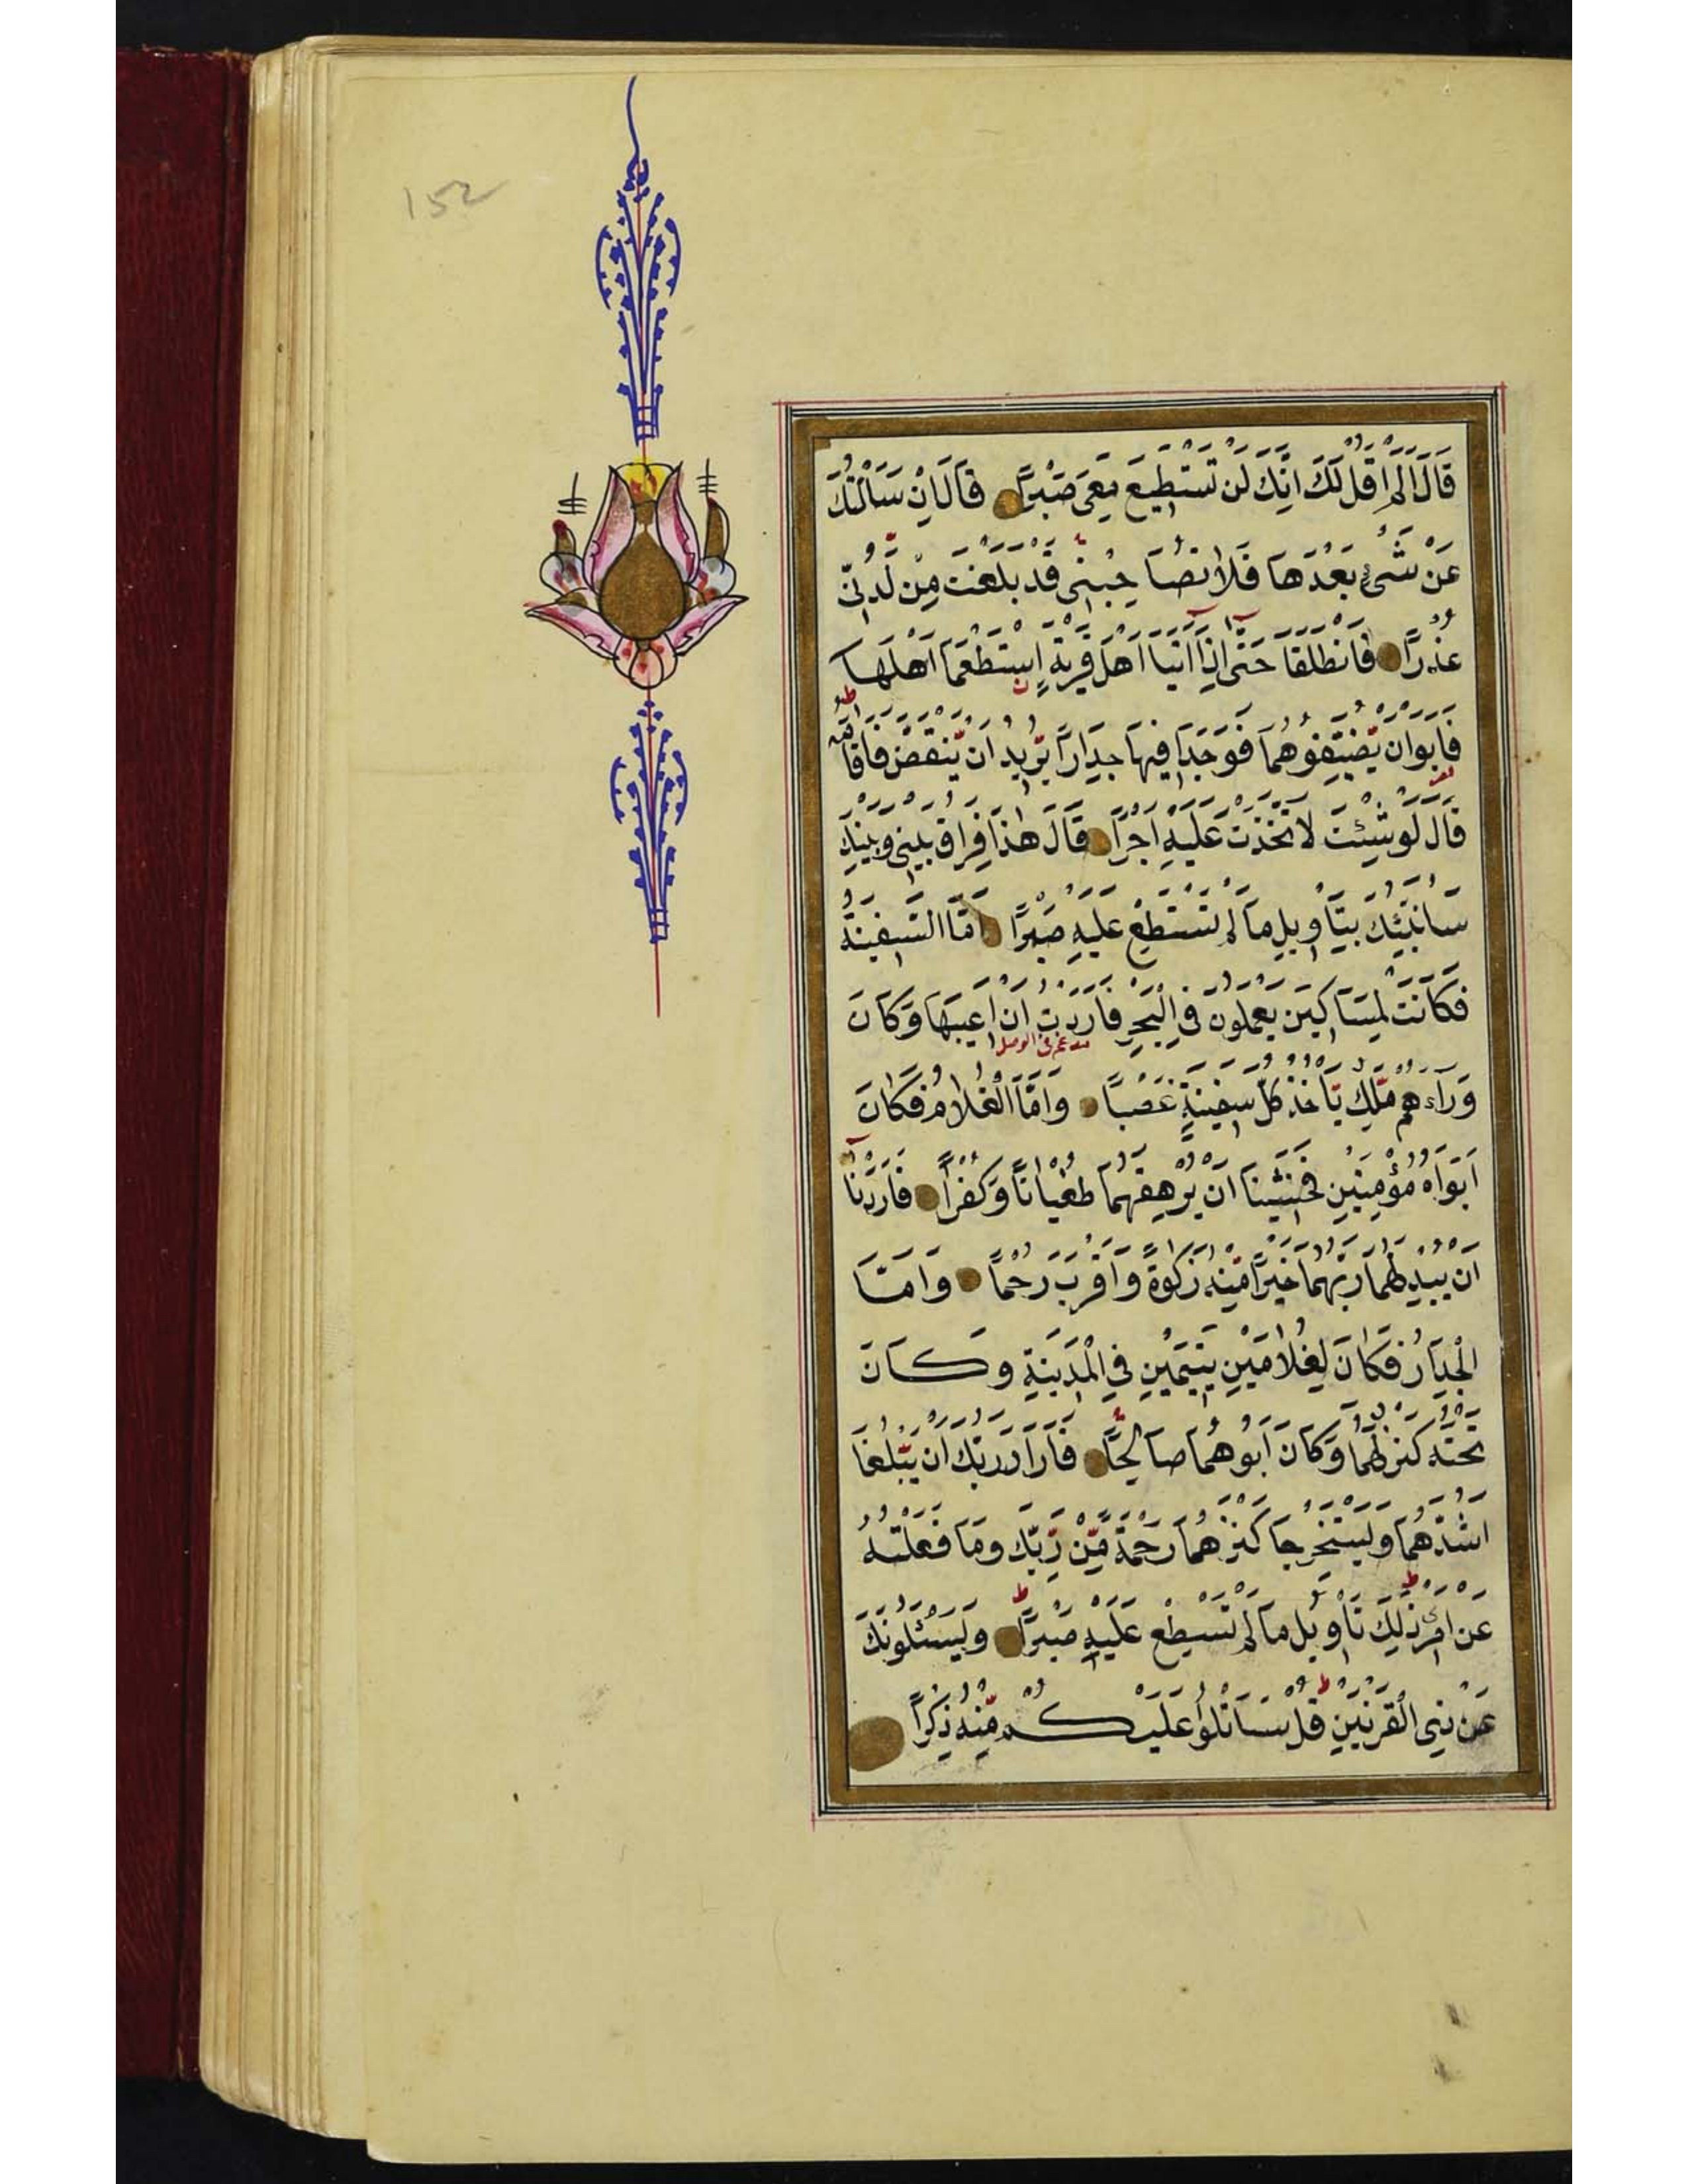 152
قَالَ اَلَمْ اَقُلْ لَكَ اِنَّكَ لَنْ تَسْتَطِيعَ مَعِىَ صَبْرًا قَالَ اِنْ سَاَلْتُكَ
عَنْ شَىْءٍ بَعْدَهَا فَلَا تُصَاحِبْنِى قَدْ بَلَغْتَ مِنْ لَدُنِّى
عُذْرًا فَانْطَلَقَا حَتَّى اِذَا اَتَيَا اَهْلَ قَرْيَةٍ اِسْتَطْعَمَا اَهْلَهَا
فَاَبَوْا اَنْ يُّضَيِّفُوهُمَا فَوَجَدَا فِيهَا جِدَارًا يُّرِيدُ اَنْ يَّنْقَضَّ فَاَقَامَهُ
قَالَ لَوْ شِئْتَ لَاتَّخَذْتَ عَلَيْهِ اَجْرًا قَالَ هٰذَا فِرَاقُ بَيْنِى وَبَيْنِكَ
سَاُنَبِّئُكَ بِتَأْوِيلِ مَا لَمْ تَسْتَطِعْ عَلَيْهِ صَبْرًا اَمَّا السَّفِينَةُ
فَكَانَتْ لِمَسَاكِينَ يَعْمَلُونَ فِى الْبَحْرِ فَاَرَدْتُ اَنْ اَعِيبَهَا وَكَانَ
مدغم فى الوصل
وَرَاءَهُمْ مَّلِكٌ يَّأْخُذُ كُلَّ سَفِينَةٍ غَصْبًا وَاَمَّا الْغُلَامُ فَكَانَ
اَبَوَاهُ مُؤْمِنَيْنِ فَخَشِينَا اَنْ يُّرْهِقَهُمَا طُغْيَانًا وَّكُفْرًا فَاَرَدْنَا
اَنْ يُبْدِلَهُمَا رَبُّهُمَا خَيْرًا مِّنْهُ زَكٰوةً وَّاَقْرَبَ رُحْمًا وَاَمَّا
الْجِدَارُ فَكَانَ لِغُلَامَيْنِ يَتِيمَيْنِ فِى الْمَدِينَةِ وَكَانَ
تَحْتَهُ كَنْزٌ لَّهُمَا وَكَانَ اَبُوهُمَا صَالِحًا فَاَرَادَ رَبُّكَ اَنْ يَّبْلُغَا
اَشُدَّهُمَا وَيَسْتَخْرِجَا كَنْزَهُمَا رَحْمَةً مِّنْ رَّبِّكَ وَمَا فَعَلْتُهُ
عَنْ اَمْرِى ذٰلِكَ تَأْوِيلُ مَا لَمْ تَسْطِعْ عَلَيْهِ صَبْرًا وَيَسْئَلُونَكَ
عَنْ ذِى الْقَرْنَيْنِ قُلْ سَاَتْلُوا عَلَيْكُمْ مِّنْهُ ذِكْرًا